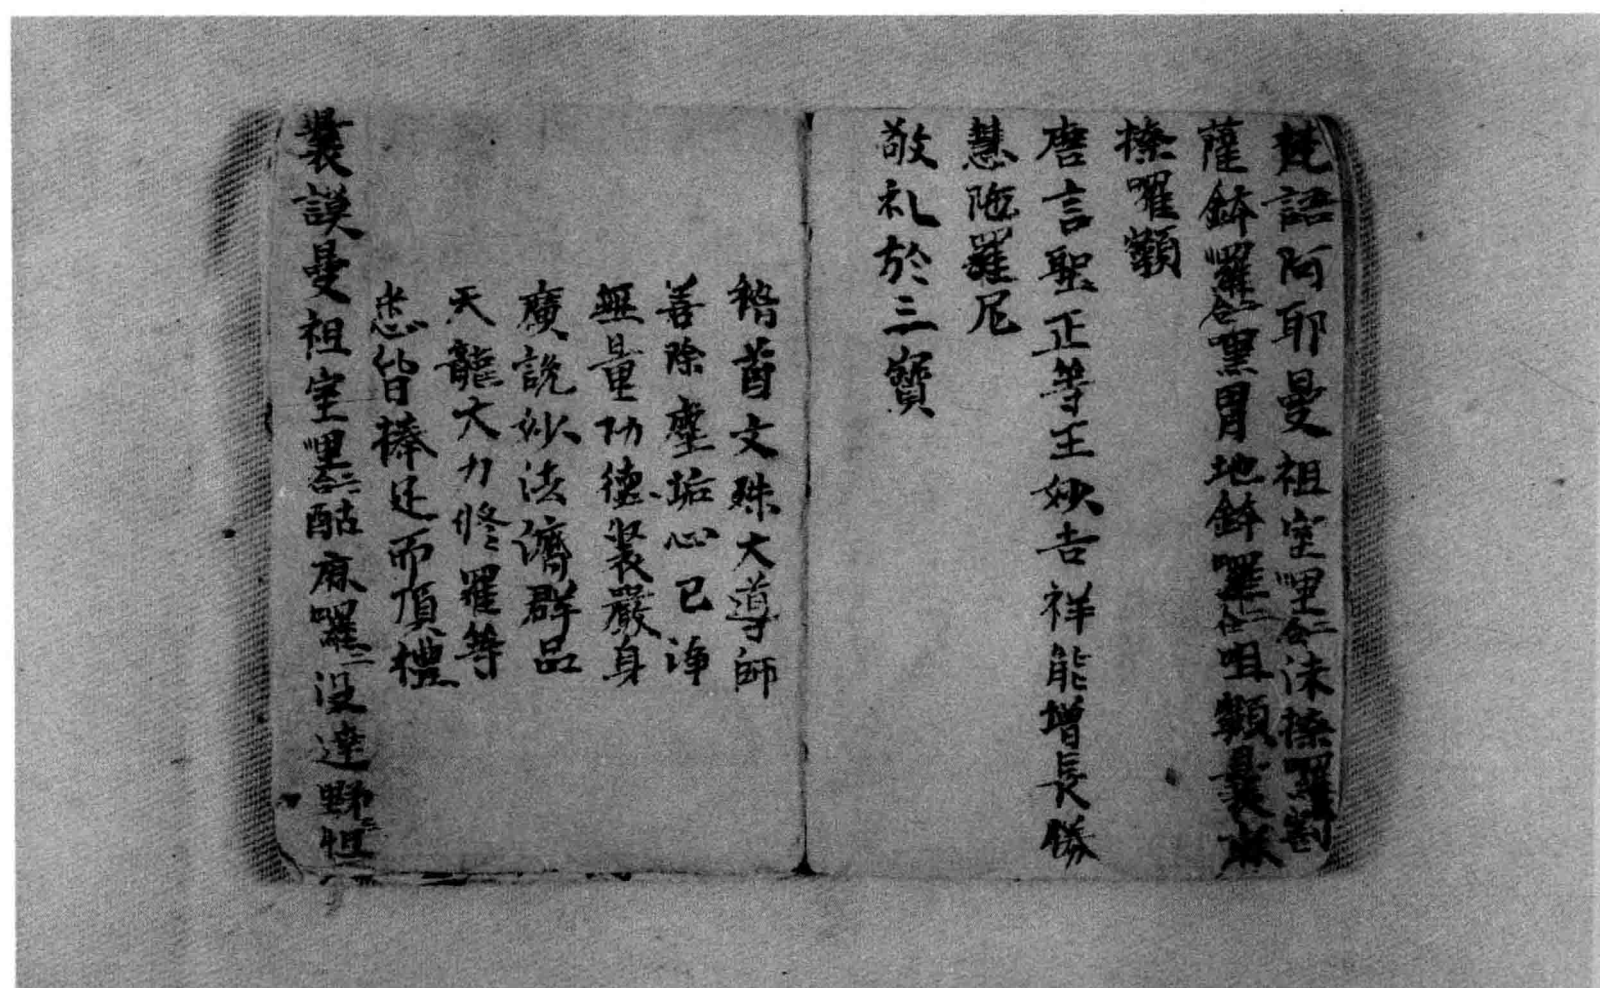 梵語阿耶曼祖室哩二合沫捺囉割
薩鉢囉二合黑胃地鉢囉二合咀顙曩麻
捺囉顙
唐言聖正等王妙吉祥能增長勝
慧陁羅尼
敬礼於三寶
稽首文殊大導師
善除塵垢心已净
無量功德裝嚴身
廣說妙法濟群品
天龍大力修羅等
悉皆捧足而頂禮
曩謨曼祖室哩二合酤麻囉二没達野二怛